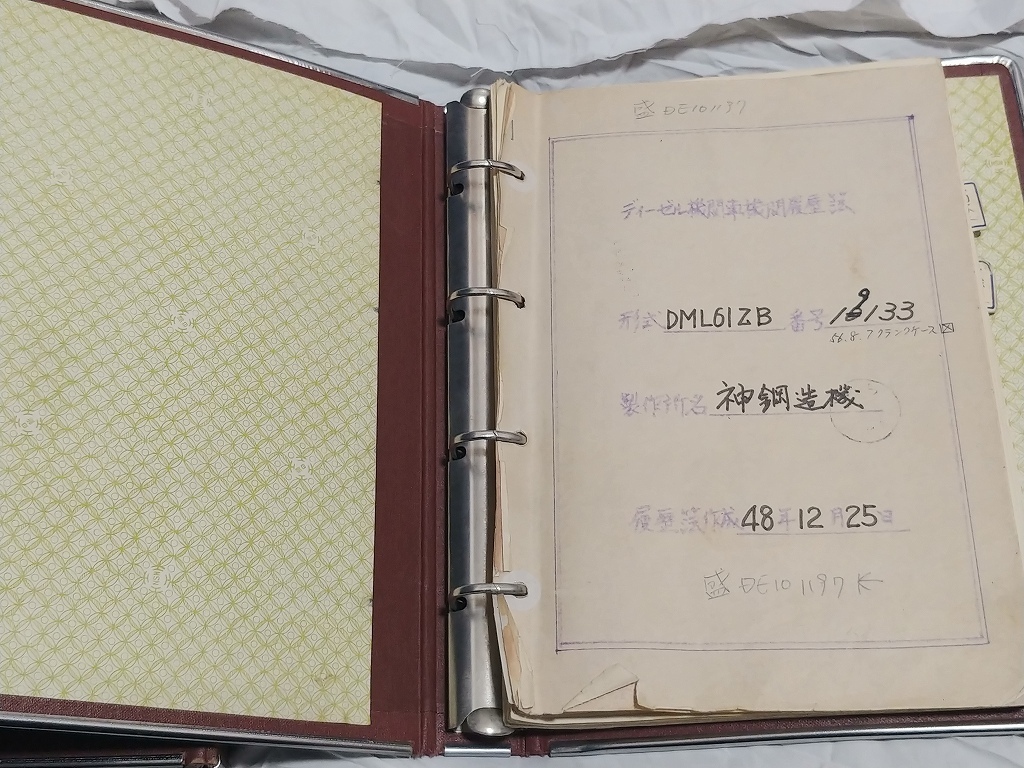 盛 DE101137
ディーゼル機関車機関履歴簿
形式 DML61ZB 番号 19133
56.8.7クランクケース
製作所名 神鋼造機
履歴簿作成 48年12月25日
盛 DE101197 K